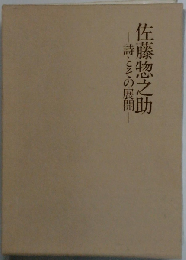 佐藤惣之助
―詩とその展開―